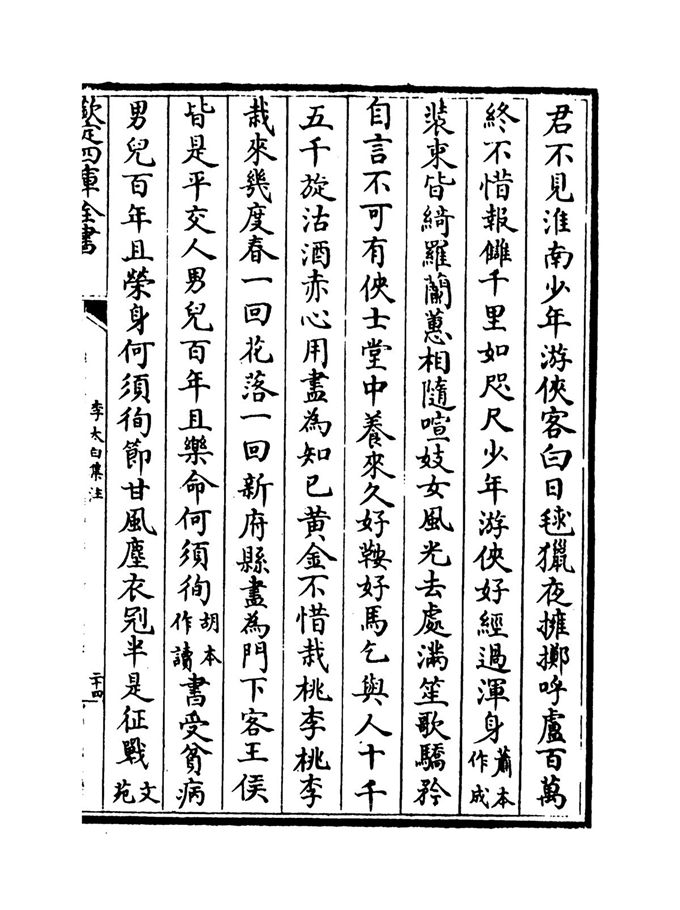 君不見淮南少年游俠客白日毬獵夜擁擲呼盧百萬
終不惜報讎千里如咫尺少年游俠好經過渾身蕭本作成
裝束皆綺羅蘭蕙相隨喧妓女風光去處滿笙歌驕矜
自言不可有俠士堂中養來久好鞍好馬乞與人十千
五千旋沽酒赤心用盡為知已黄金不惜栽桃李桃李
栽來幾度春一回花落一回新府縣盡為門下客王侯
皆是平交人男兒百年且樂命何須徇胡本作讀書受貧病
男兒百年且榮身何須徇節甘風塵衣冠半是征戰文苑
欽定四庫全書
李太白集注
二十四